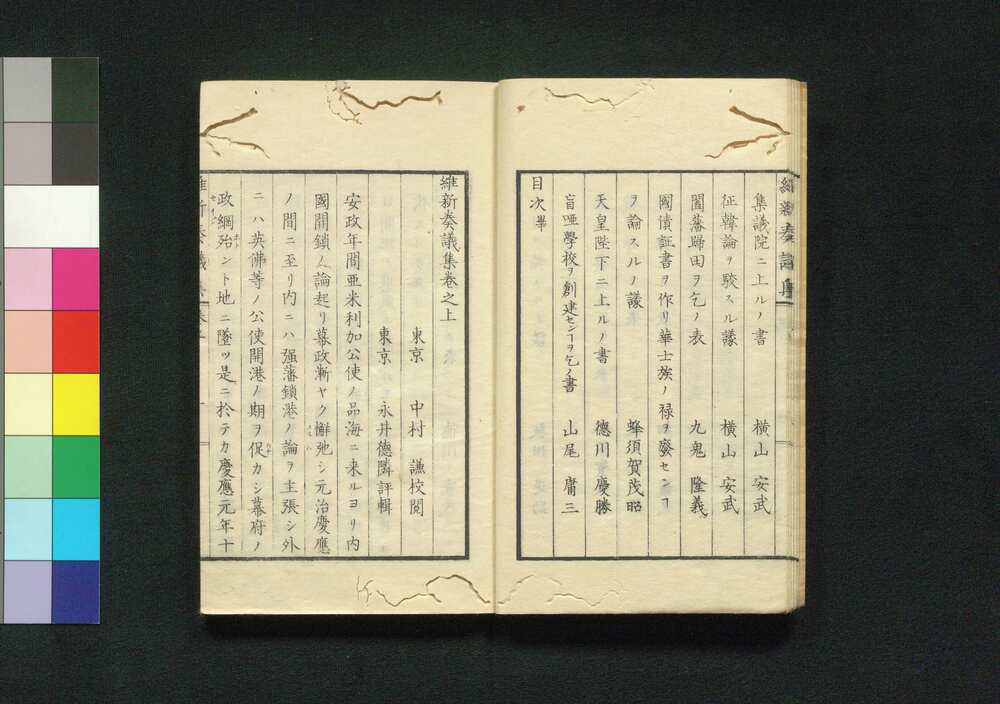 集議院ニ上ルノ書 横山 安武
征韓論ヲ駁スル議 横山 安武
闔藩歸田ヲ乞ノ表 九鬼 隆義
國債証書ヲ作リ華士族ノ禄ヲ廢センコ
ヲ論スルノ議 蜂須賀茂昭
天皇陛下ニ上ルノ書 德川慶勝
盲唖學校ヲ創建センヿヲ乞ノ書 山尾 庸三
目次畢
維新奏議集卷之上
東京 中村 謙校閲
東京 永井德隣評輯
安政年間亜米利加公使ノ品海ニ来ルヨリ内
國開鎖ノ論起リ幕政漸ヤク懈弛シ元治慶應
ノ間ニ至リ内ニハ强藩鎖港ノ論ヲ主張シ外
ニハ英佛等ノ公使開港ノ期ヲ促カシ幕府ノ
政綱殆ント地ニ墜ツ是ニ於テカ慶應元年十